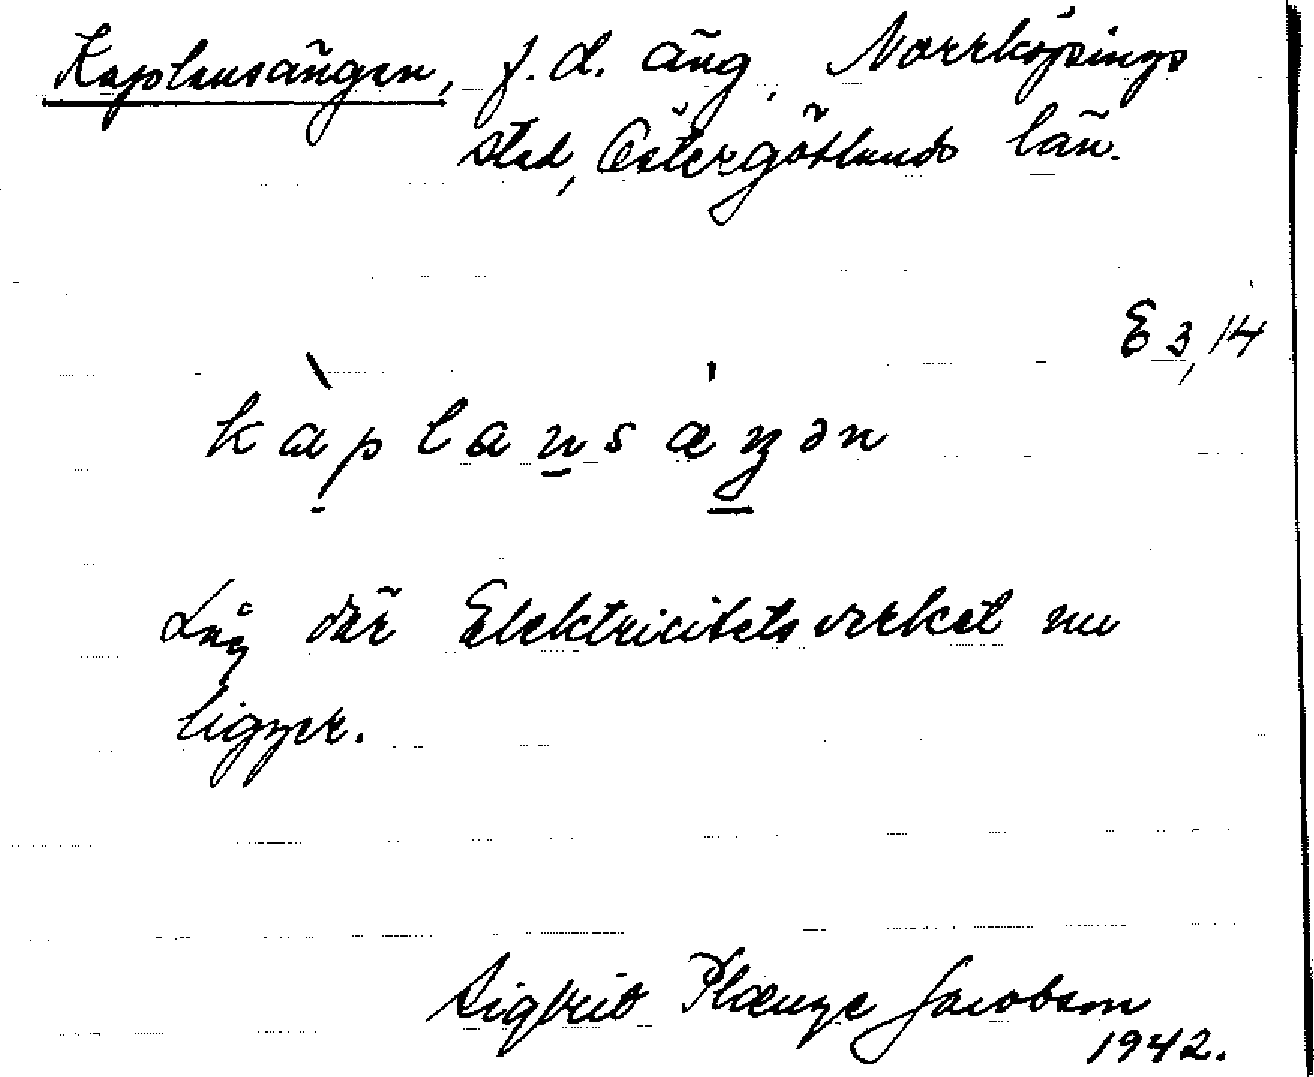 Kaplansängen, f.d. äng, Norrköpings
stad, Östergötlands län.
E 3,14
kàplansáŋən
Låg där Elektricitetsverket nu
ligger.
Sigfrid Plænge Jacobson
1942.